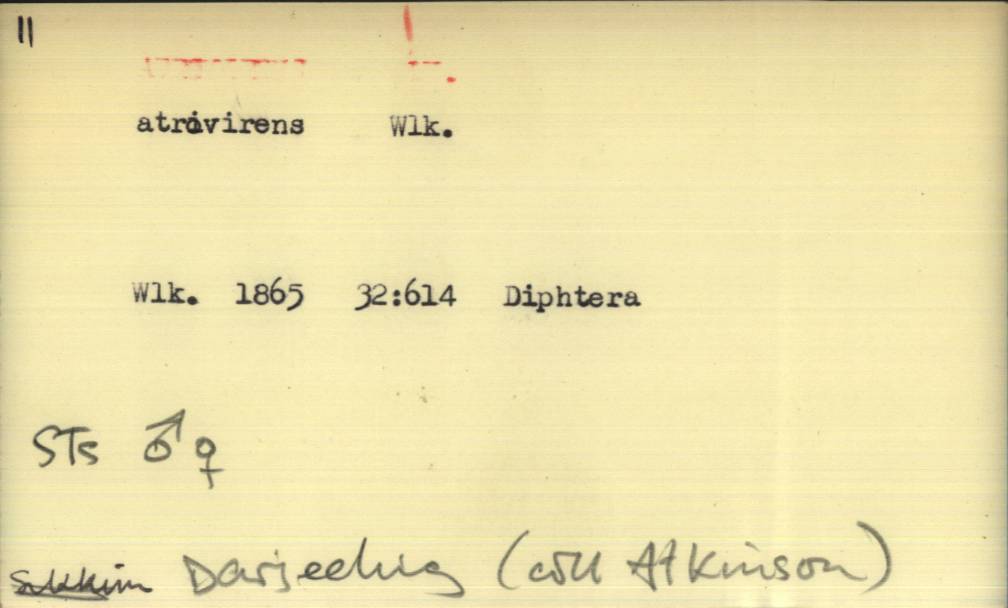 11
atrovirens Wlk.
Wlk. 1865 32:614 Diphtera
STs ♂ ♀
Sikkim Darjeeling (coll Atkinson)